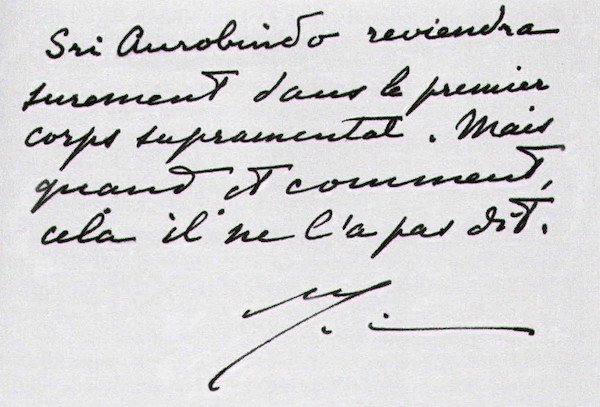 Sri Aurobindo reviendra
surement dans le premier
corps supramental. Mais
quand et comment,
cela il ne l'a pas dit.